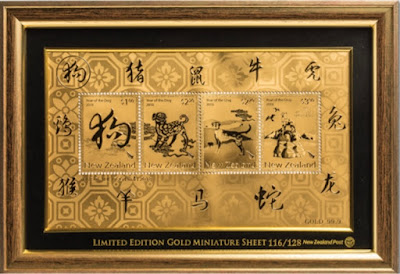 狗 猪 鼠 牛 虎
鸡 兔
Year of the Dog Year of the Dog Year of the Dog Year of the Dog
2018 2018 2018 2018
狗
New Zealand New Zealand New Zealand New Zealand
猴 羊 马 蛇 龙
LIMITED EDITION GOLD MINIATURE SHEET 116/128 New Zealand Post